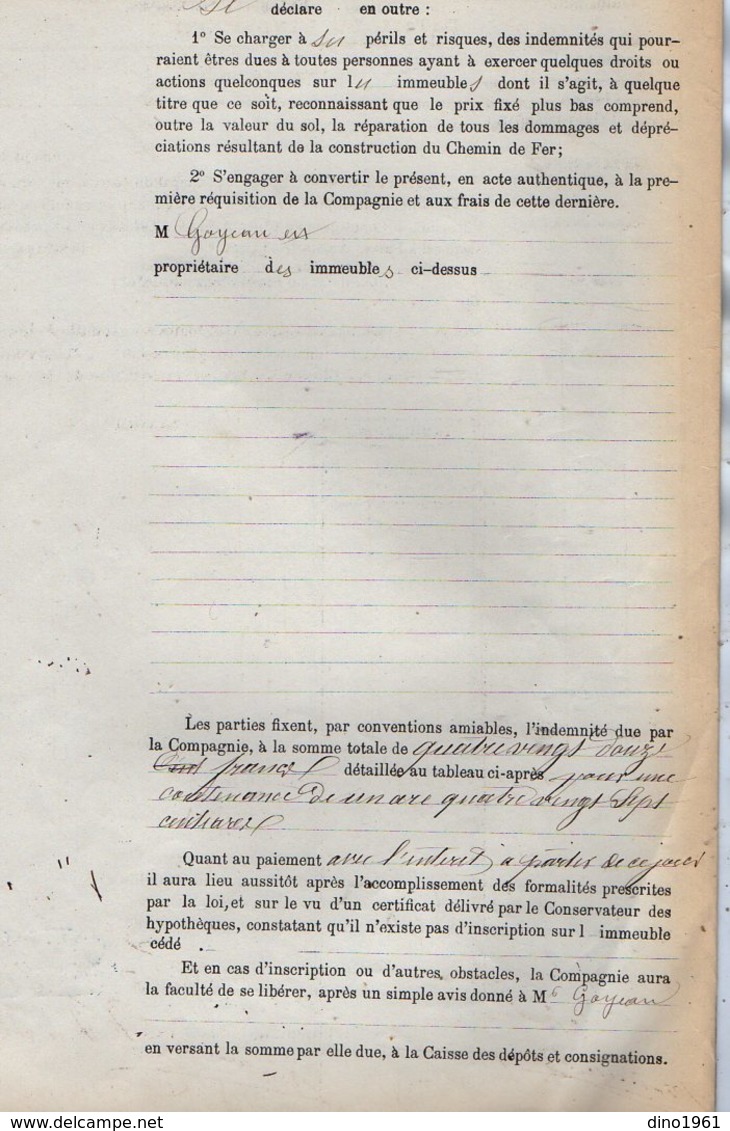 Il déclare en outre :
1º Se charger à ses périls et risques, des indemnités qui pour-
raient êtres dues à toutes personnes ayant à exercer quelques droits ou
actions quelconques sur les immeubles dont il s'agit, à quelque
titre que ce soit, reconnaissant que le prix fixé plus bas comprend,
outre la valeur du sol, la réparation de tous les dommages et dépré-
ciations résultant de la construction du Chemin de Fer;
2º S'engager à convertir le présent, en acte authentique, à la pre-
mière réquisition de la Compagnie et aux frais de cette dernière.
M Goyeau est
propriétaire des immeubles ci-dessus
Les parties fixent, par conventions amiables, l'indemnité due par
la Compagnie, à la somme totale de quatre vingt douze
francs détaillée au tableau ci-après pour une
contenance de un are quatre vingt sept
centiares
Quant au paiement avec l'intérêt à partir de ce jour
il aura lieu aussitôt après l'accomplissement des formalités prescrites
par la loi, et sur le vu d'un certificat délivré par le Conservateur des
hypothèques, constatant qu'il n'existe pas d'inscription sur l immeuble
cédé .
Et en cas d'inscription ou d'autres obstacles, la Compagnie aura
la faculté de se libérer, après un simple avis donné à M Goyeau
en versant la somme par elle due, à la Caisse des dépôts et consignations.
delcampe.net
dino1961